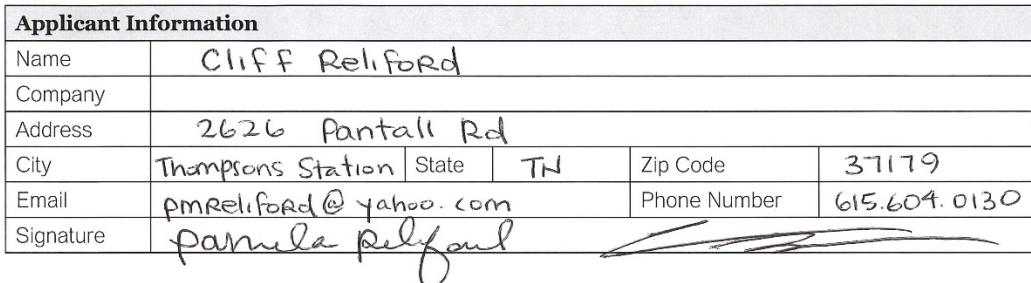 Applicant Information
Name Cliff Reliford
Company
Address 2626 Pantall Rd
City Thompsons Station State TN Zip Code 37179
Email pmReliford@yahoo.com Phone Number 615.604.0130
Signature Pamela Reliford